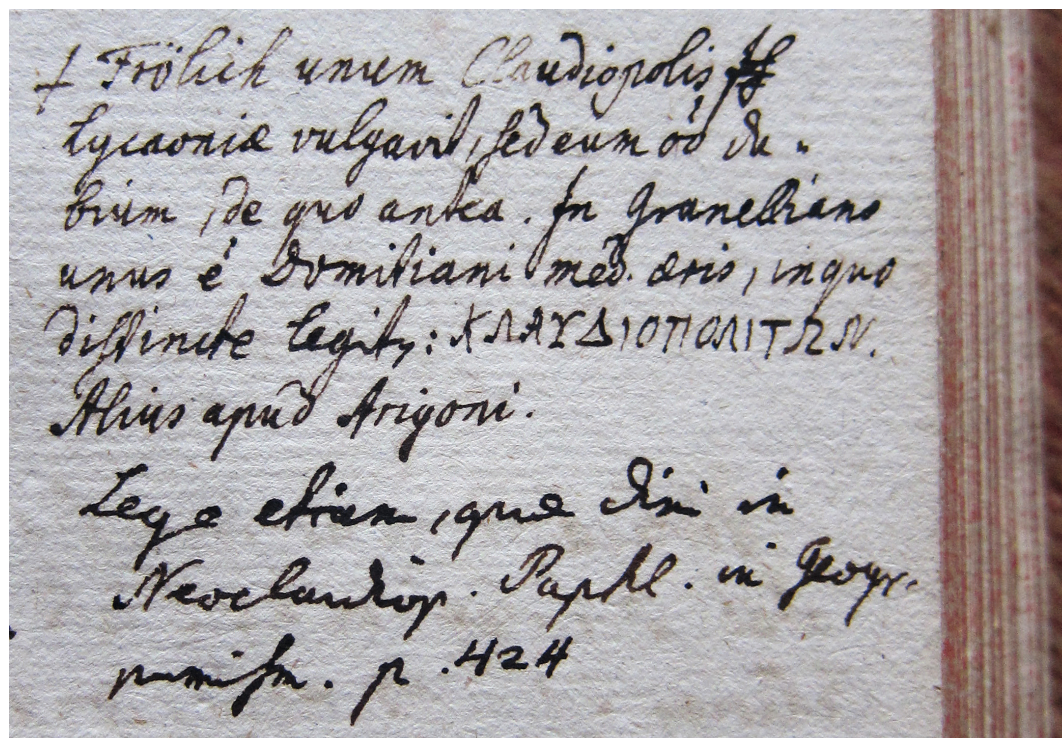 + Frölich unum Claudiopolis
Lycaoniæ vulgavit, sed eum oo du-
bium, de quo antea. In Granelliano
unus è Domitiani med. æris, in quo
distincte legitr: ΚΛΑΥΔΙΟΠΟΛΙΤΩΝ.
Alius apud Arigoni.
Lege etiam, quæ dixi in
Neoclaudiop. Paphl. in Geogr.
numism. p. 424